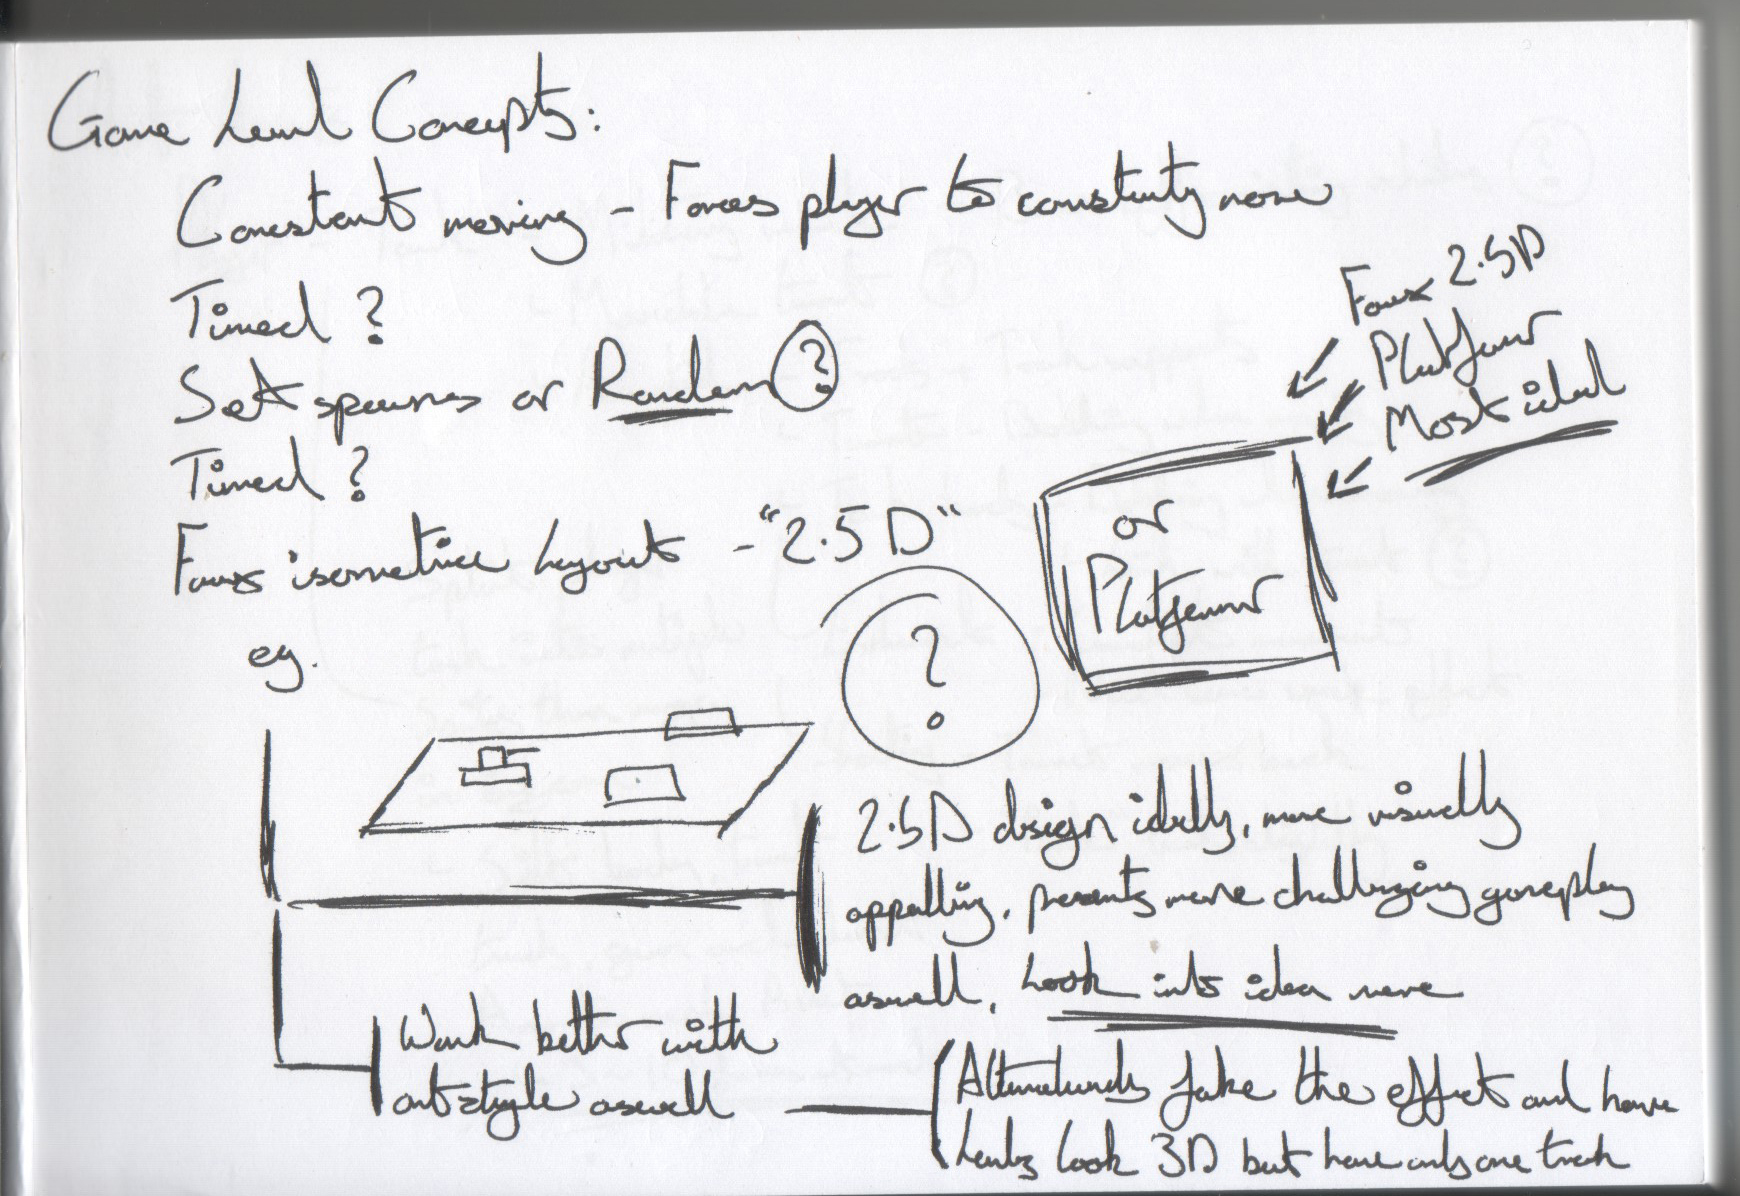 Game Level Concepts:
Constant moving - Forces player to constantly move
Timed ?
Set spawns or Random ?
Timed ?
Faux isometric Layout - "2.5D"
eg.
?
or
Platformer
Faux 2.5D
Platformer
Most ideal
2.5D design ideally, more visually
appealling, presents more challenging gameplay
aswell, Look into idea more
Work better with
artstyle aswell
Alternatively fake the effect and have
Levels Look 3D but have only one track